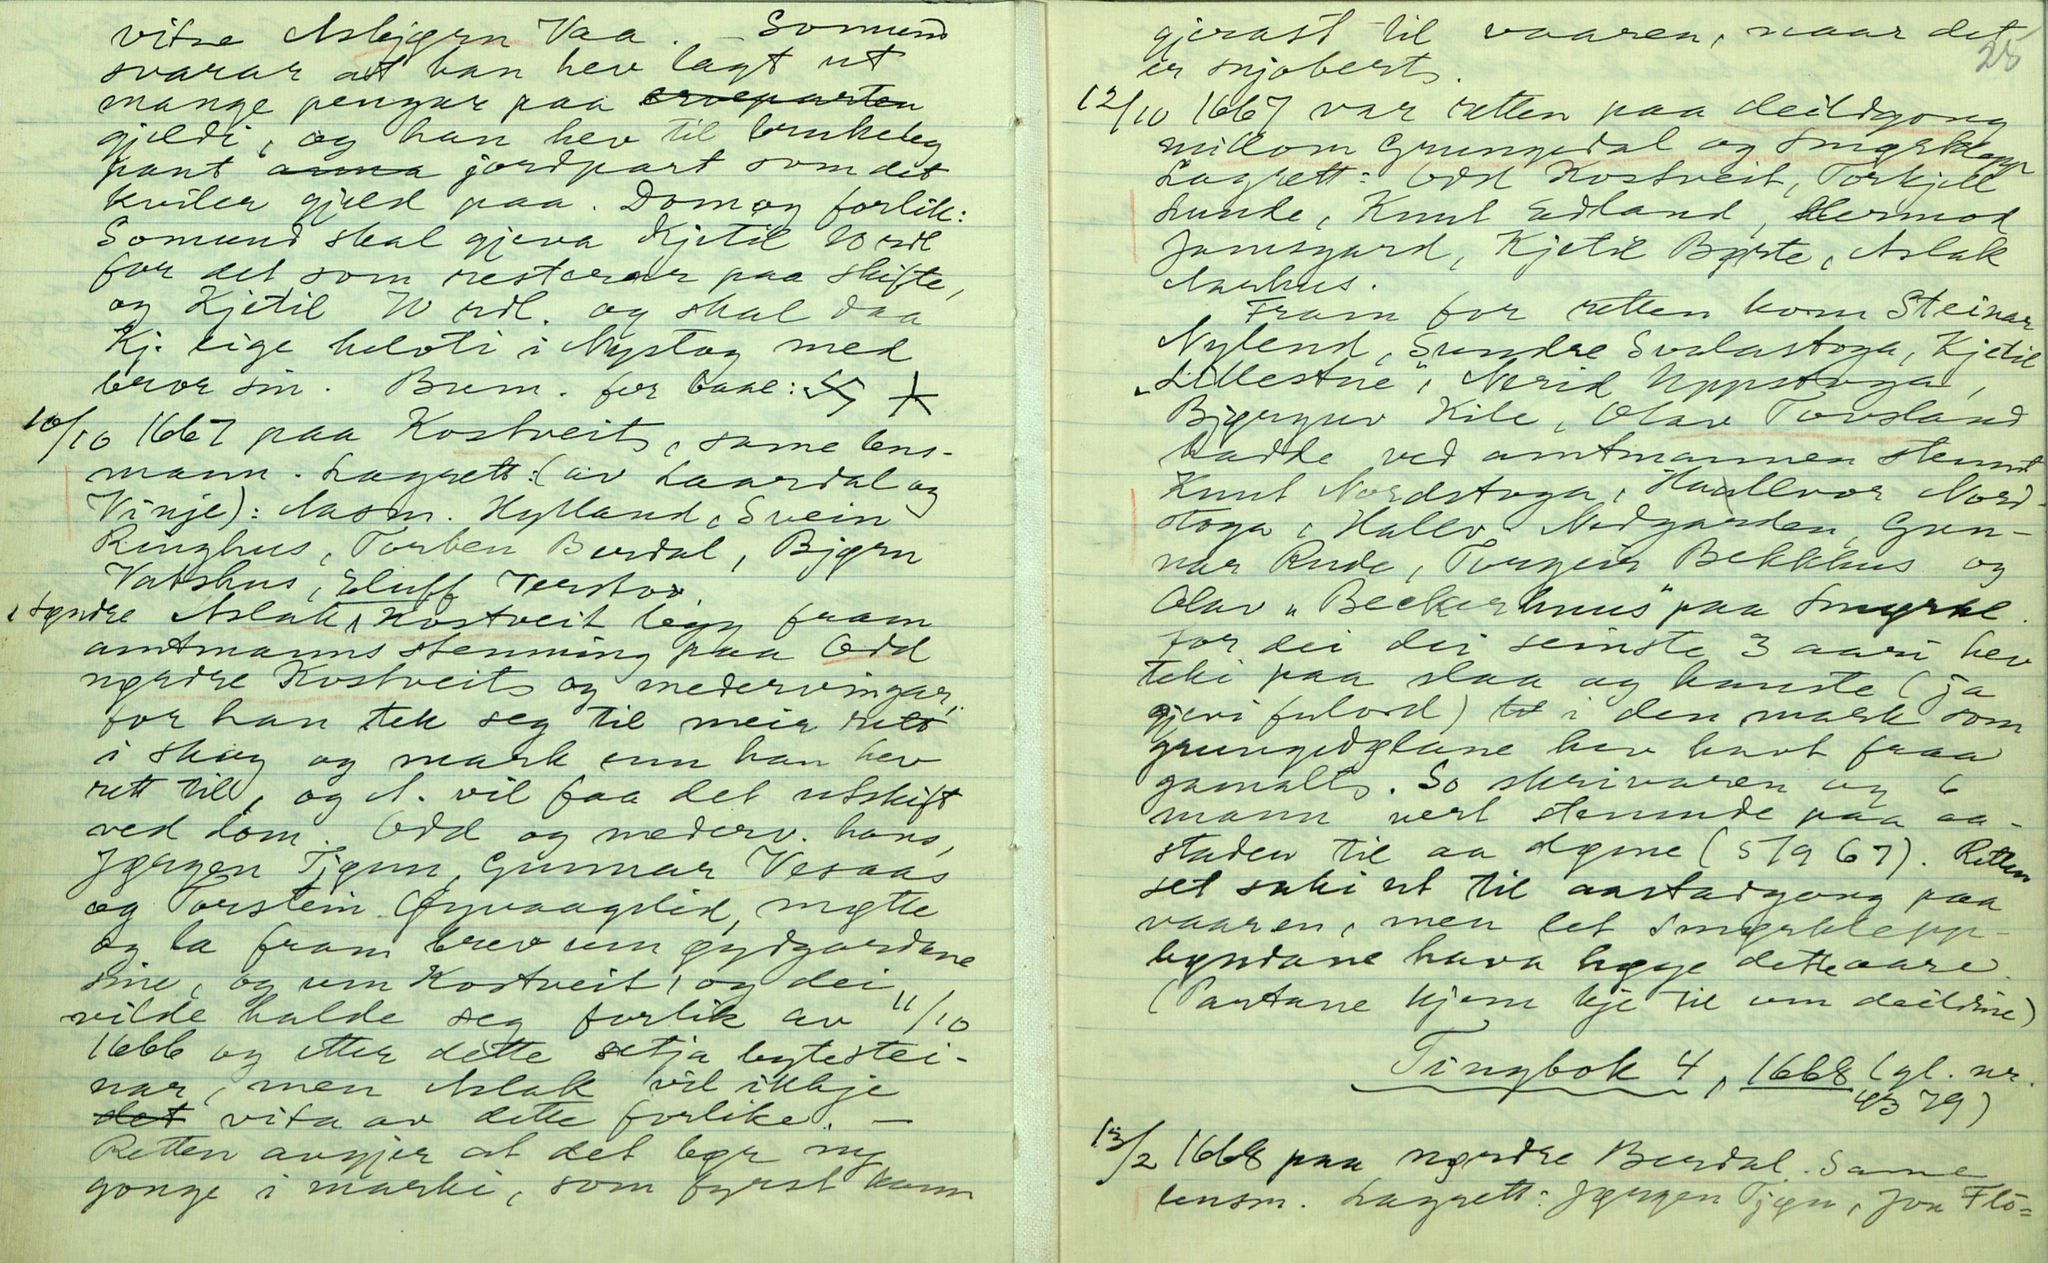 vitne Asbjørn Vaa. – Somund
svarar at han hev lagt ut
mange pengar paa erveparten
gjeldi, og han hev til brukeleg
pant anna jordpart som det
kviler gjeld paa. Dom og forlik:
Somund skal gjeva Kjetil 20 rdl
for det som resterar paa skifte,
og Kjetil 70 rdl. og skal daa
Kj. eige helvti i Nystog med
bror sin. Bum. for baae:
10/10 1667 paa Kostveit, same lens-
mann. Lagrett: (av Laardal og
Vinje): Aasm. Hylland, Svein
Ringhus, Torben Burdal, Bjørn
Vatshus, Eluff
Aslak, søndre Kostveit legg fram
amtmanns stemning paa Odd
nørdre Kostveit og medervingar,
for han tek seg til meir rett
i skog og mark enn han hev
rett til, og A. vil faa det utskift
ved dom. Odd og mederv. hans,
Jørgen Tjønn, Gunnar Vesaas
og Torstein Øyvaagslid, møtte
og la fram brev um øydgardane
sine, og um Kostveit, og dei
vilde halde seg forlik av 11/10
1666 og etter dette setja bytestei-
nar, men Aslak vil ikkje
det vita av dette forlike. –
Retten avgjer at det bør ny
gonge i marki, som fyrst kann
25
gjerast til vaaren, naar det
er snjobert.
12/10 1667 var retten paa deildgong
millom Grungedal og Smørklepp
Lagrett: Odd Kostveit, Torkjell
Lunde, Knut Edland, Hermod
Jamsgard, Kjetil Børte, Aslak
Aarhus.
Fram for retten kom Steinar
Nylend, Sundre Svalastoga, Kjetil
"Lillestue", Uppstoga,
Bjørgu‌v Kile, Olav Torsland
hadde ved amtmannen stemnt
Knut Nordstoga, Haallvor Nord-
stoga, Hallv. Nedgarden, Gun-
nar Rude, Torgeir Bekkhus og
Olav "Beckerhuus" paa Smørkl.
for dei dei seinste 3 aari hev
teki paa slaa og hauste (ja
gjevi fulord) i den mark som
grungedølane hev havt fraa
gamalt. So skrivaren og 6
mann vert stemnde paa aa-
staden til aa døme (5/9 67). Retten
set saki ut til aastadgong paa
vaaren, men let Smørklepp-
bøndane hava høye dette aare.
(Partane kjem kje til um deildine)
Tingbok 4, 1668 (gl. nr.
4379)
13/2 1668 paa nørdre Burdal. Same
lensm. Lagrett: Jørgen Tjøn, Jon Flo=